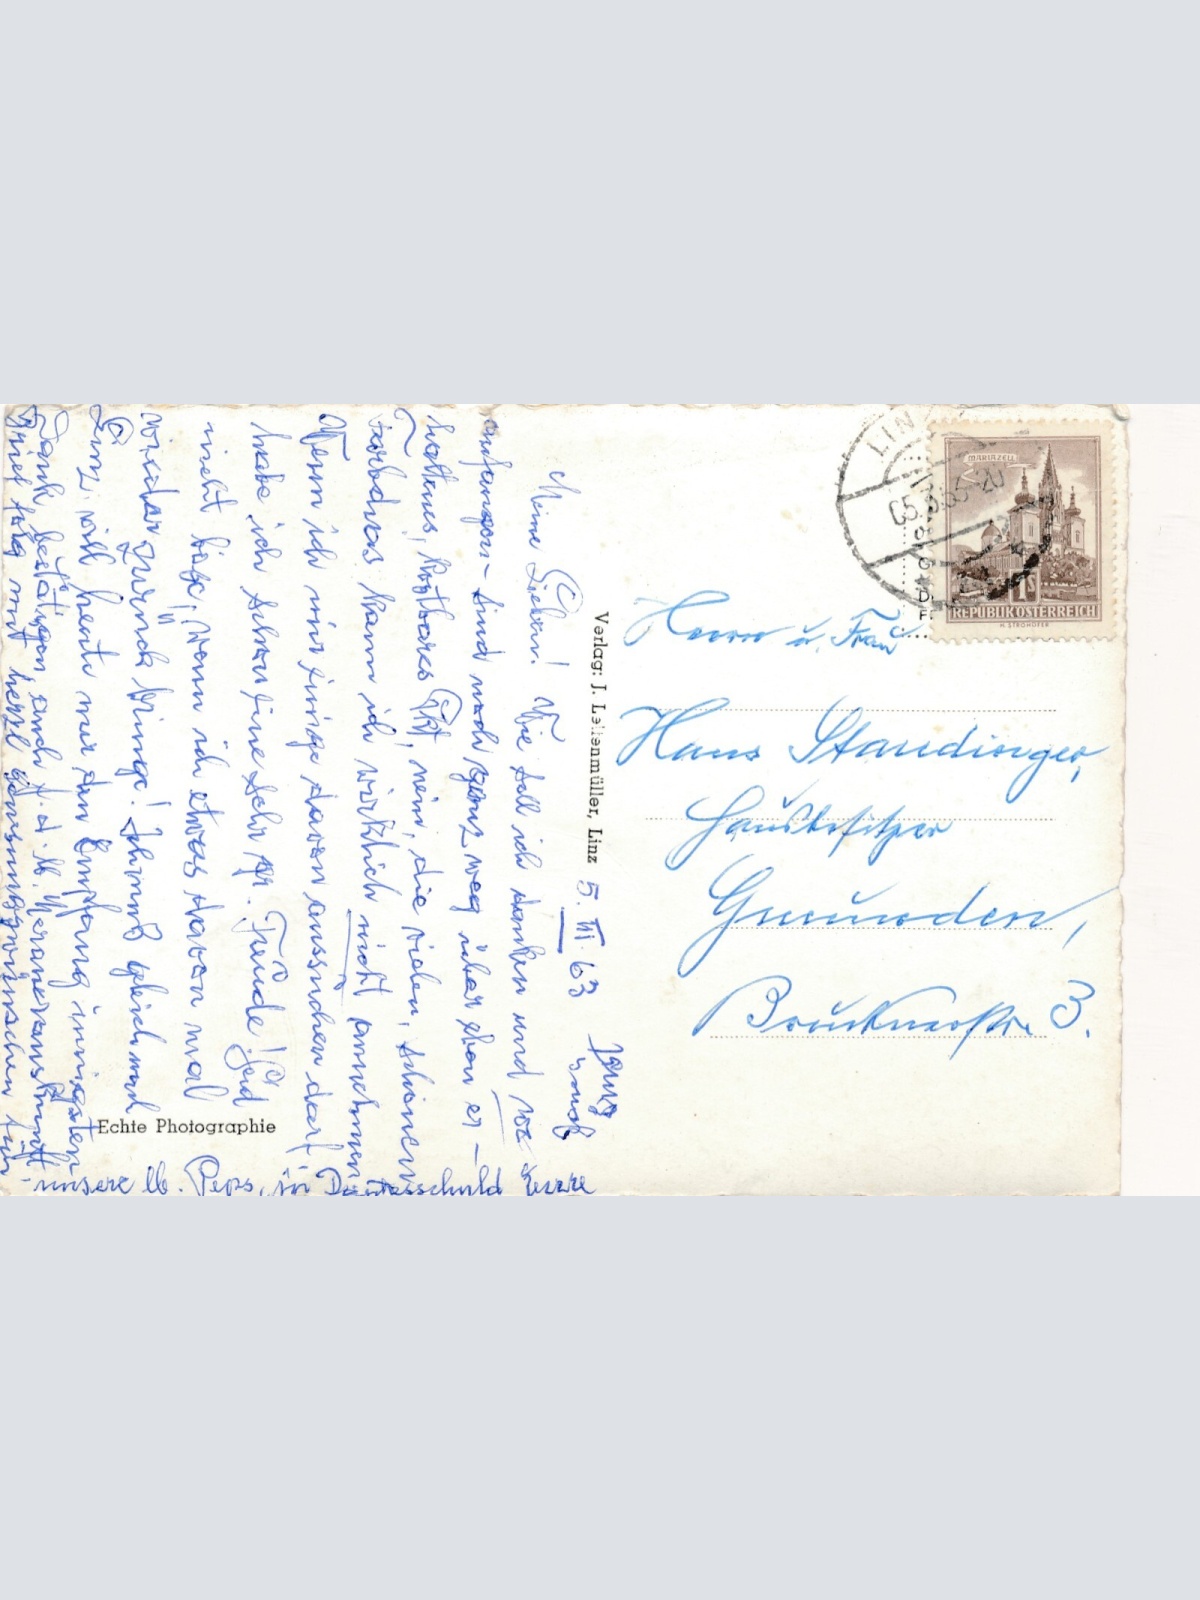 5. III. 63
Meine Lieben! Wie soll ich danken und wo
anfangen - sind noch ganz weg über eben er-
haltenes, kostbares Pkt, nein, die vielen, schönen
Farbdias kann ich wirklich nicht annehmen
Wenn ich mir einige davon aussuchen darf
habe ich schon eine sehr gr. Freude! Seid
nicht böse, wenn ich etwas davon mal
wieder zurück bringe! gleich nach
Linz. will heute nur den Empfang innigsten
Dank bestätigen, auch f. d. lb.
Brief folgt mit herzl. Genesungswünschen für
unsere lb. Peps, in Dankesschuld Eure
Verlag: J. Leitenmüller, Linz
Echte Photographie
LINZ
MARIAZELL
1S
REPUBLIK ÖSTERREICH
H. STROHOFER
Herrn u. Frau
Hans Staudinger,
Hausbesitzer
Gmunden,
Brucknerstr. 3.